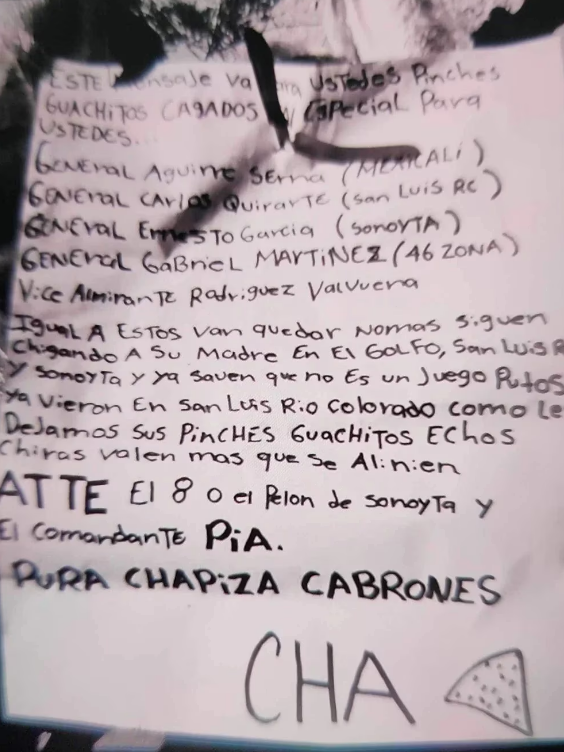 ESTE Mensaje Va Para USTedes Pinches
GUACHITOS CAGADOS Y ESPecial Para
USTEDES...
GENERAL Aguirre Serna (MEXICALI)
GENERAL CARLOS QUIRARTE (san Luis RC)
GENERAL ErnESTO Garcia (SONOYTA)
GENERAL GaBrieL MARTINEZ (46 ZONA)
Vice Almirante Rodriguez Valvuena
Igual A ESTOS Van quedar Nomas siguen
Chigando A Su Madre En El GOLFO, San Luis R
Y SONOYTa y ya saven que no Es un Juego Putos
Ya Vieron En San Luis Rio Colorado como le
DeJamos Sus PiNCHES GuacHiTos ECHos
Chiras valen mas que Se Alinien
ATTE El 8 O el Pelon de sonoyta y
El ComandanTE PiA.
PURA CHAPiZA CABRONES
CHA